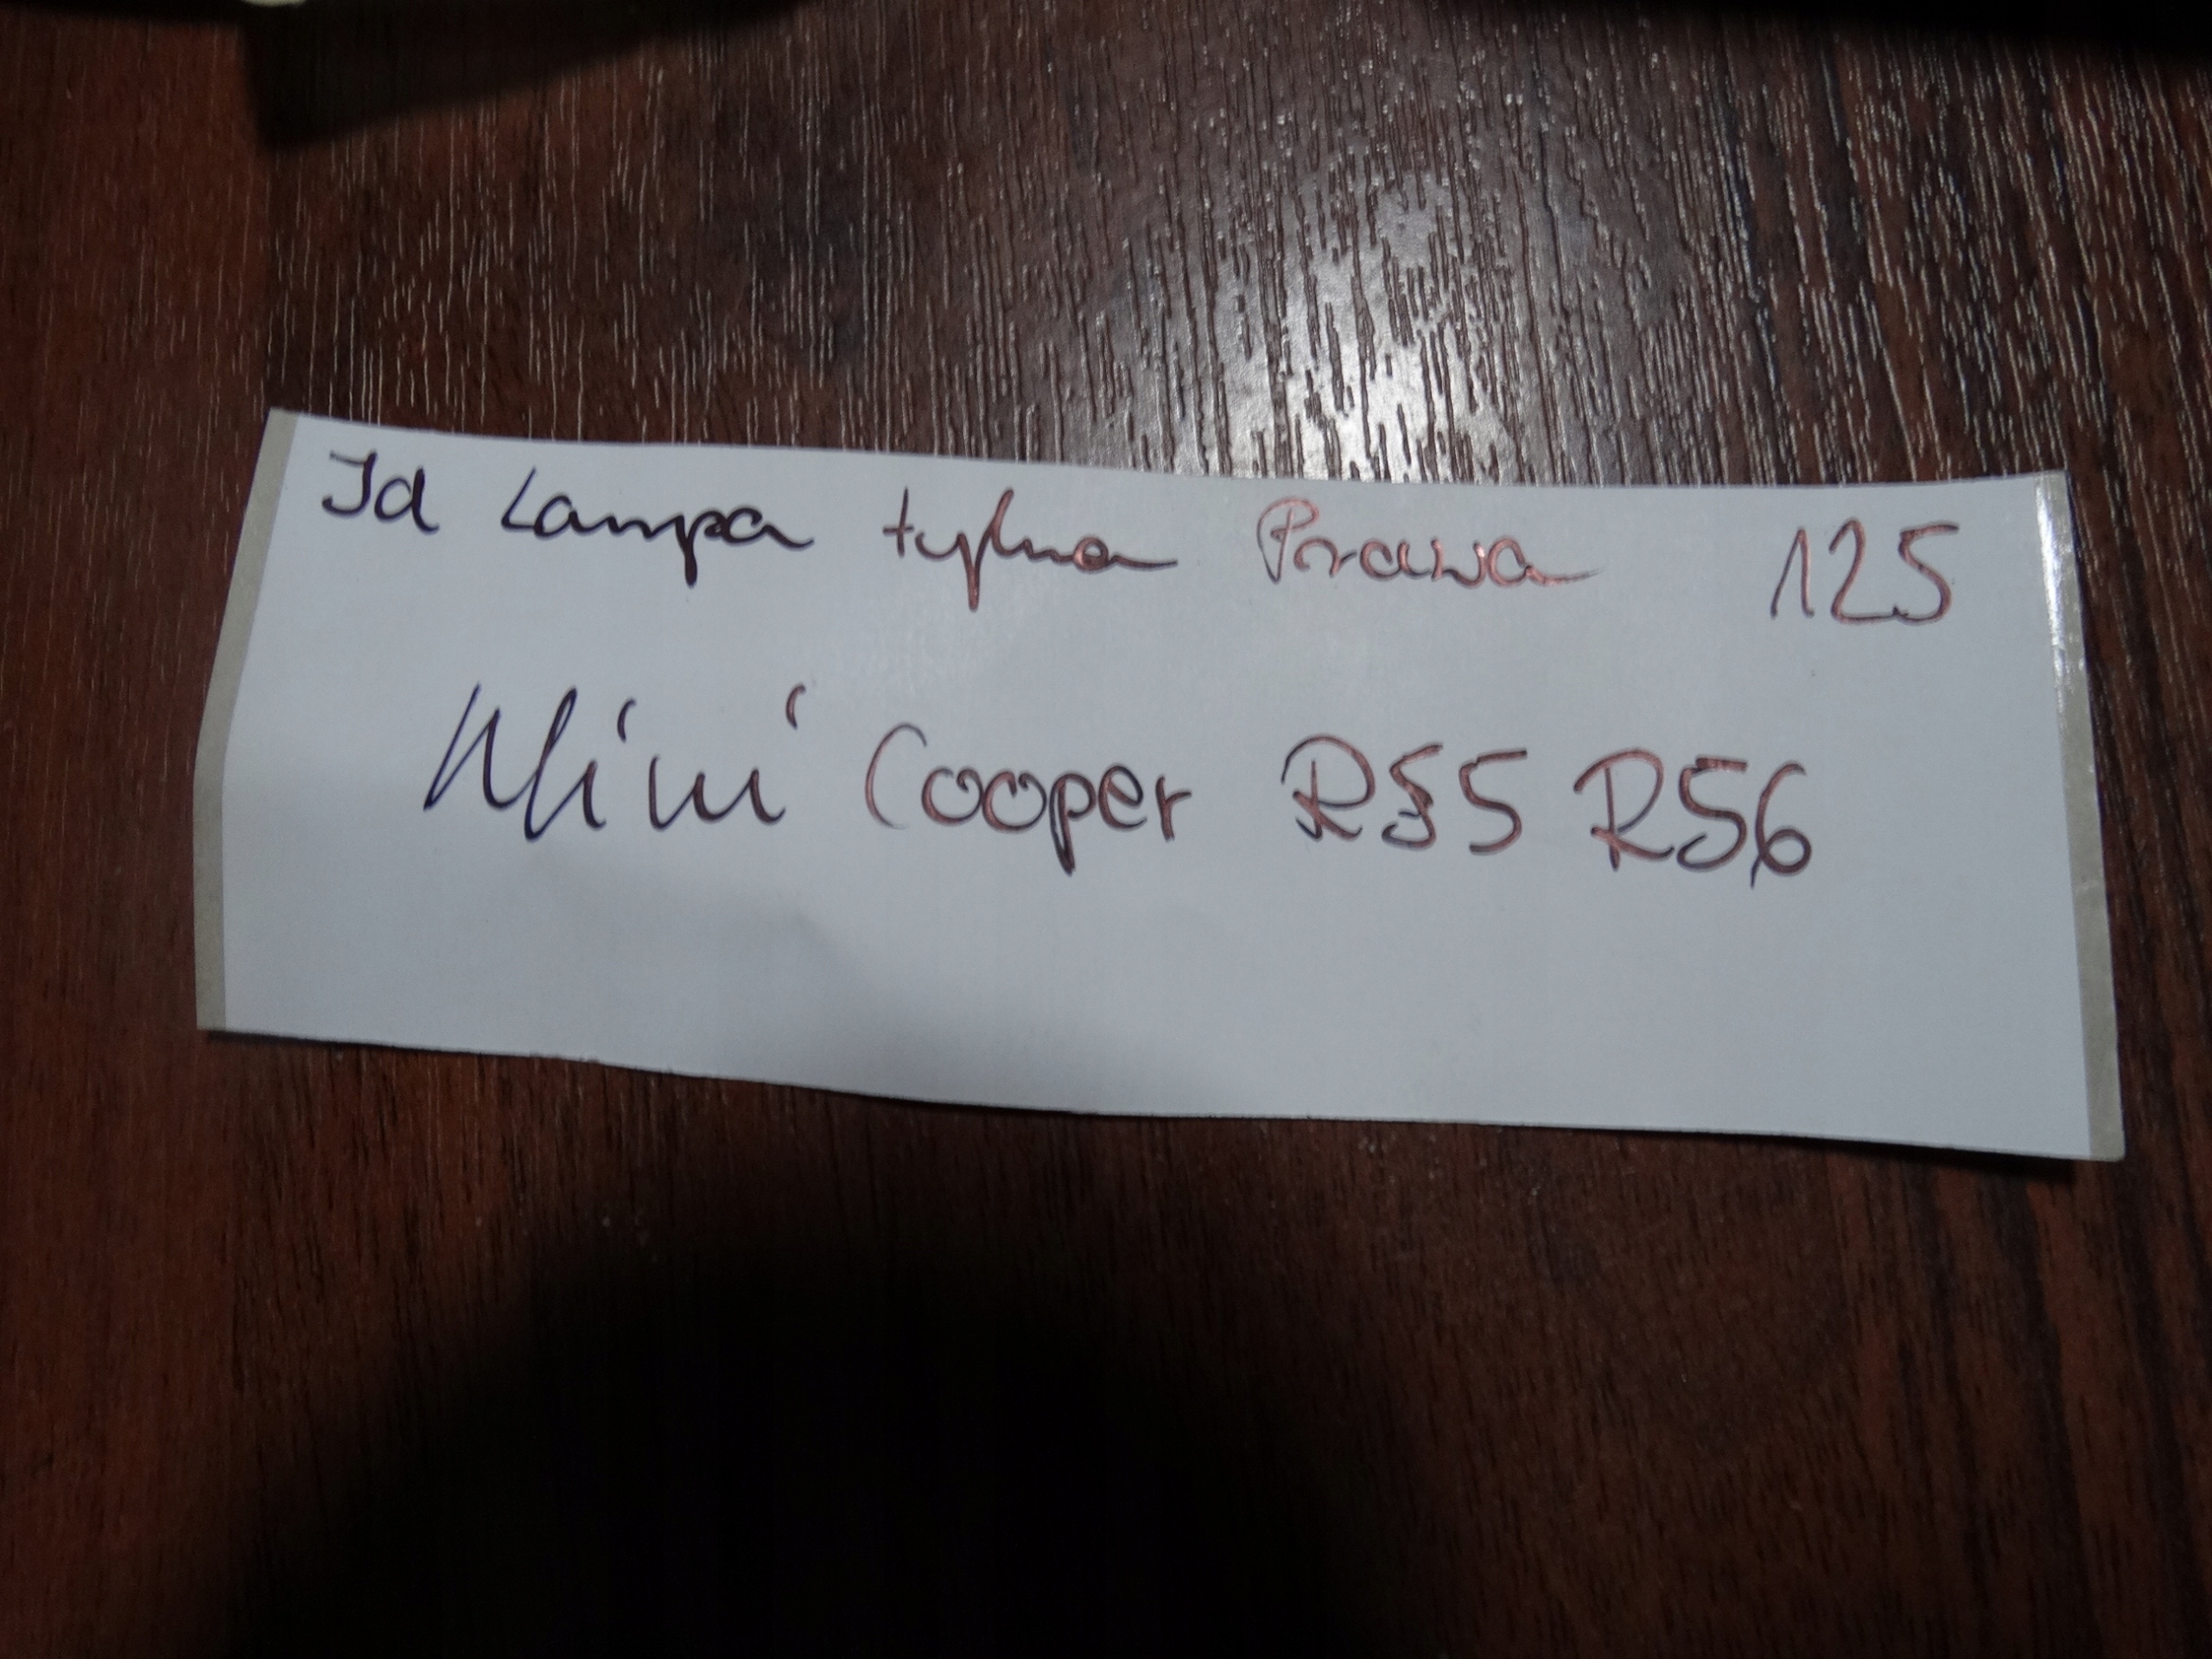 Id Lampa tylna Prawa 125
Mini Cooper R55 R56